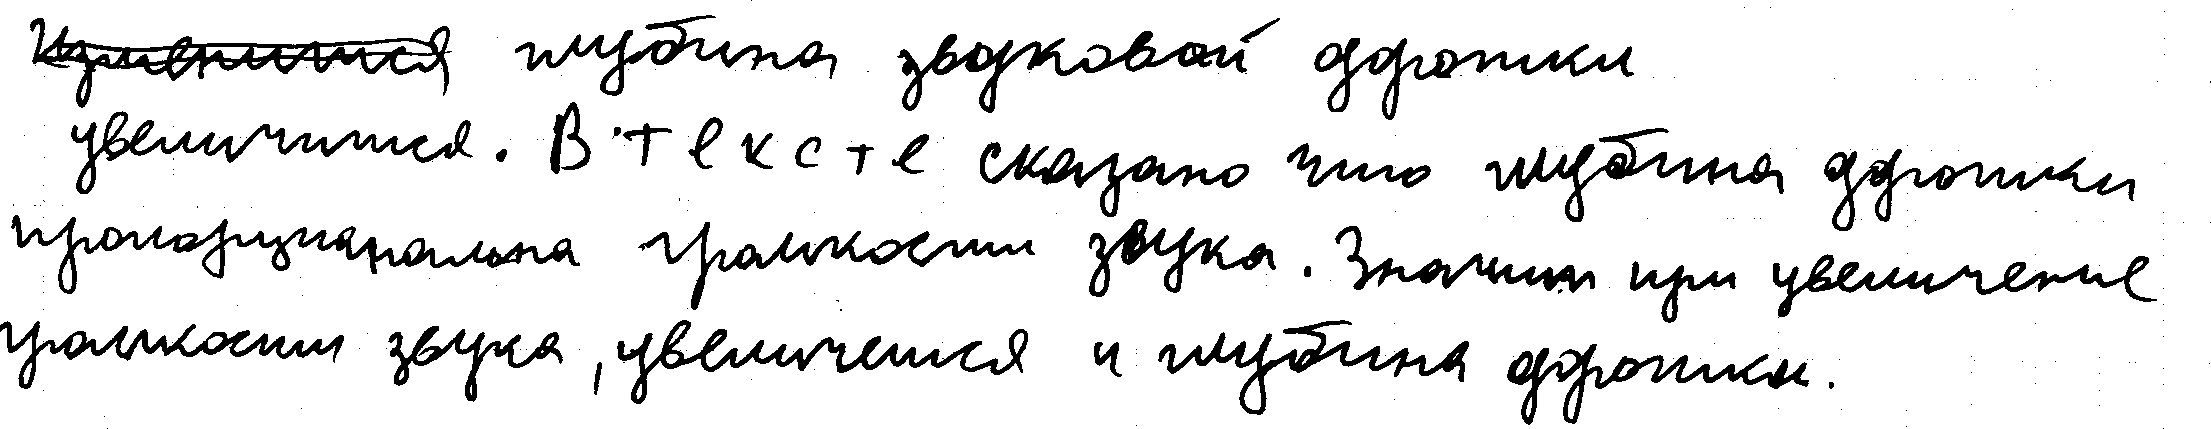 глубина звуковой ддрожки
увеличится. В тексте сказано что глубина ддрожки
пропорцианальна громкости звука. Значит при увеличение
громкости звука, увеличется и глубина ддрожки.